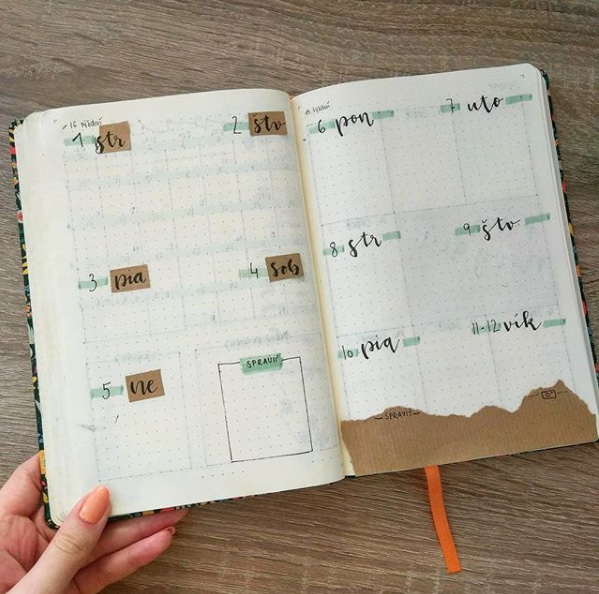 16 týždeň
1 str
2 štv
3 pia
4 sob
5 ne
SPRAVIŤ
týždeň
6 pon
7 uto
8 str
9 štv
10 pia
11-12 vík
SPRAVIŤ